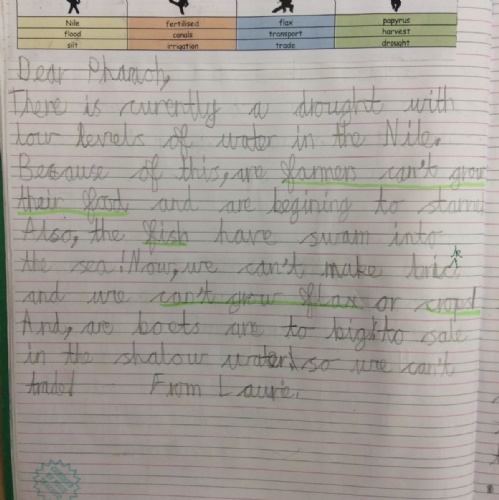 Nile fertilised flax papyrus
flood canals transport harvest
silt irrigation trade drought
Dear Pharaoh,
There is curently a drought with
low levels of water in the Nile.
Because of this, are farmers can't grow
their food and are begining to starve!
Also, the fish have swam into
the sea! Now, we can't make brick
and we can't grow flax or crops!
And, are boets are to big to sale
in the shalow water! so we can't
trade! From Laurie.